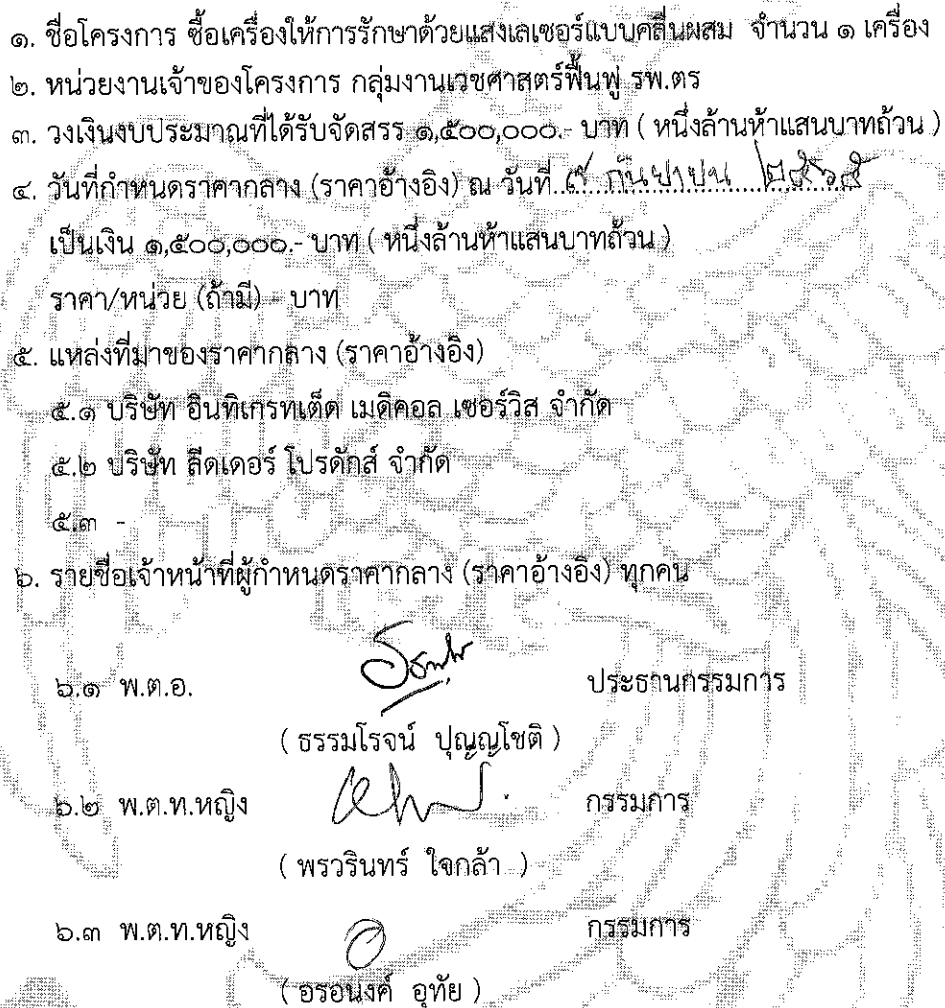 ๑. ชื่อโครงการ ซื้อเครื่องให้การรักษาด้วยแสงเลเซอร์แบบคลื่นผสม จำนวน ๑ เครื่อง
๒. หน่วยงานเจ้าของโครงการ กลุ่มงานเวชศาสตร์ฟื้นฟู รพ.ตร
๓. วงเงินงบประมาณที่ได้รับจัดสรร ๑,๕๐๐,๐๐๐.- บาท ( หนึ่งล้านห้าแสนบาทถ้วน )
๔. วันที่กำหนดราคากลาง (ราคาอ้างอิง) ณ วันที่ กันยายน ๒๕๖๕
เป็นเงิน ๑,๕๐๐,๐๐๐.- บาท ( หนึ่งล้านห้าแสนบาทถ้วน )
ราคา/หน่วย (ถ้ามี) - บาท
๕. แหล่งที่มาของราคากลาง (ราคาอ้างอิง)
๕.๑ บริษัท อินทิเกรทเต็ด เมดิคอล เซอร์วิส จำกัด
๕.๒ บริษัท ลีดเดอร์ โปรดักส์ จำกัด
๕.๓ -
๖. รายชื่อเจ้าหน้าที่ผู้กำหนดราคากลาง (ราคาอ้างอิง) ทุกคน
๖.๑ พ.ต.อ. ประธานกรรมการ
( ธรรมโรจน์ ปุญญโชติ )
๖.๒ พ.ต.ท.หญิง กรรมการ
( พรวรินทร์ ใจกล้า )
๖.๓ พ.ต.ท.หญิง กรรมการ
( อรอนงค์ อุทัย )